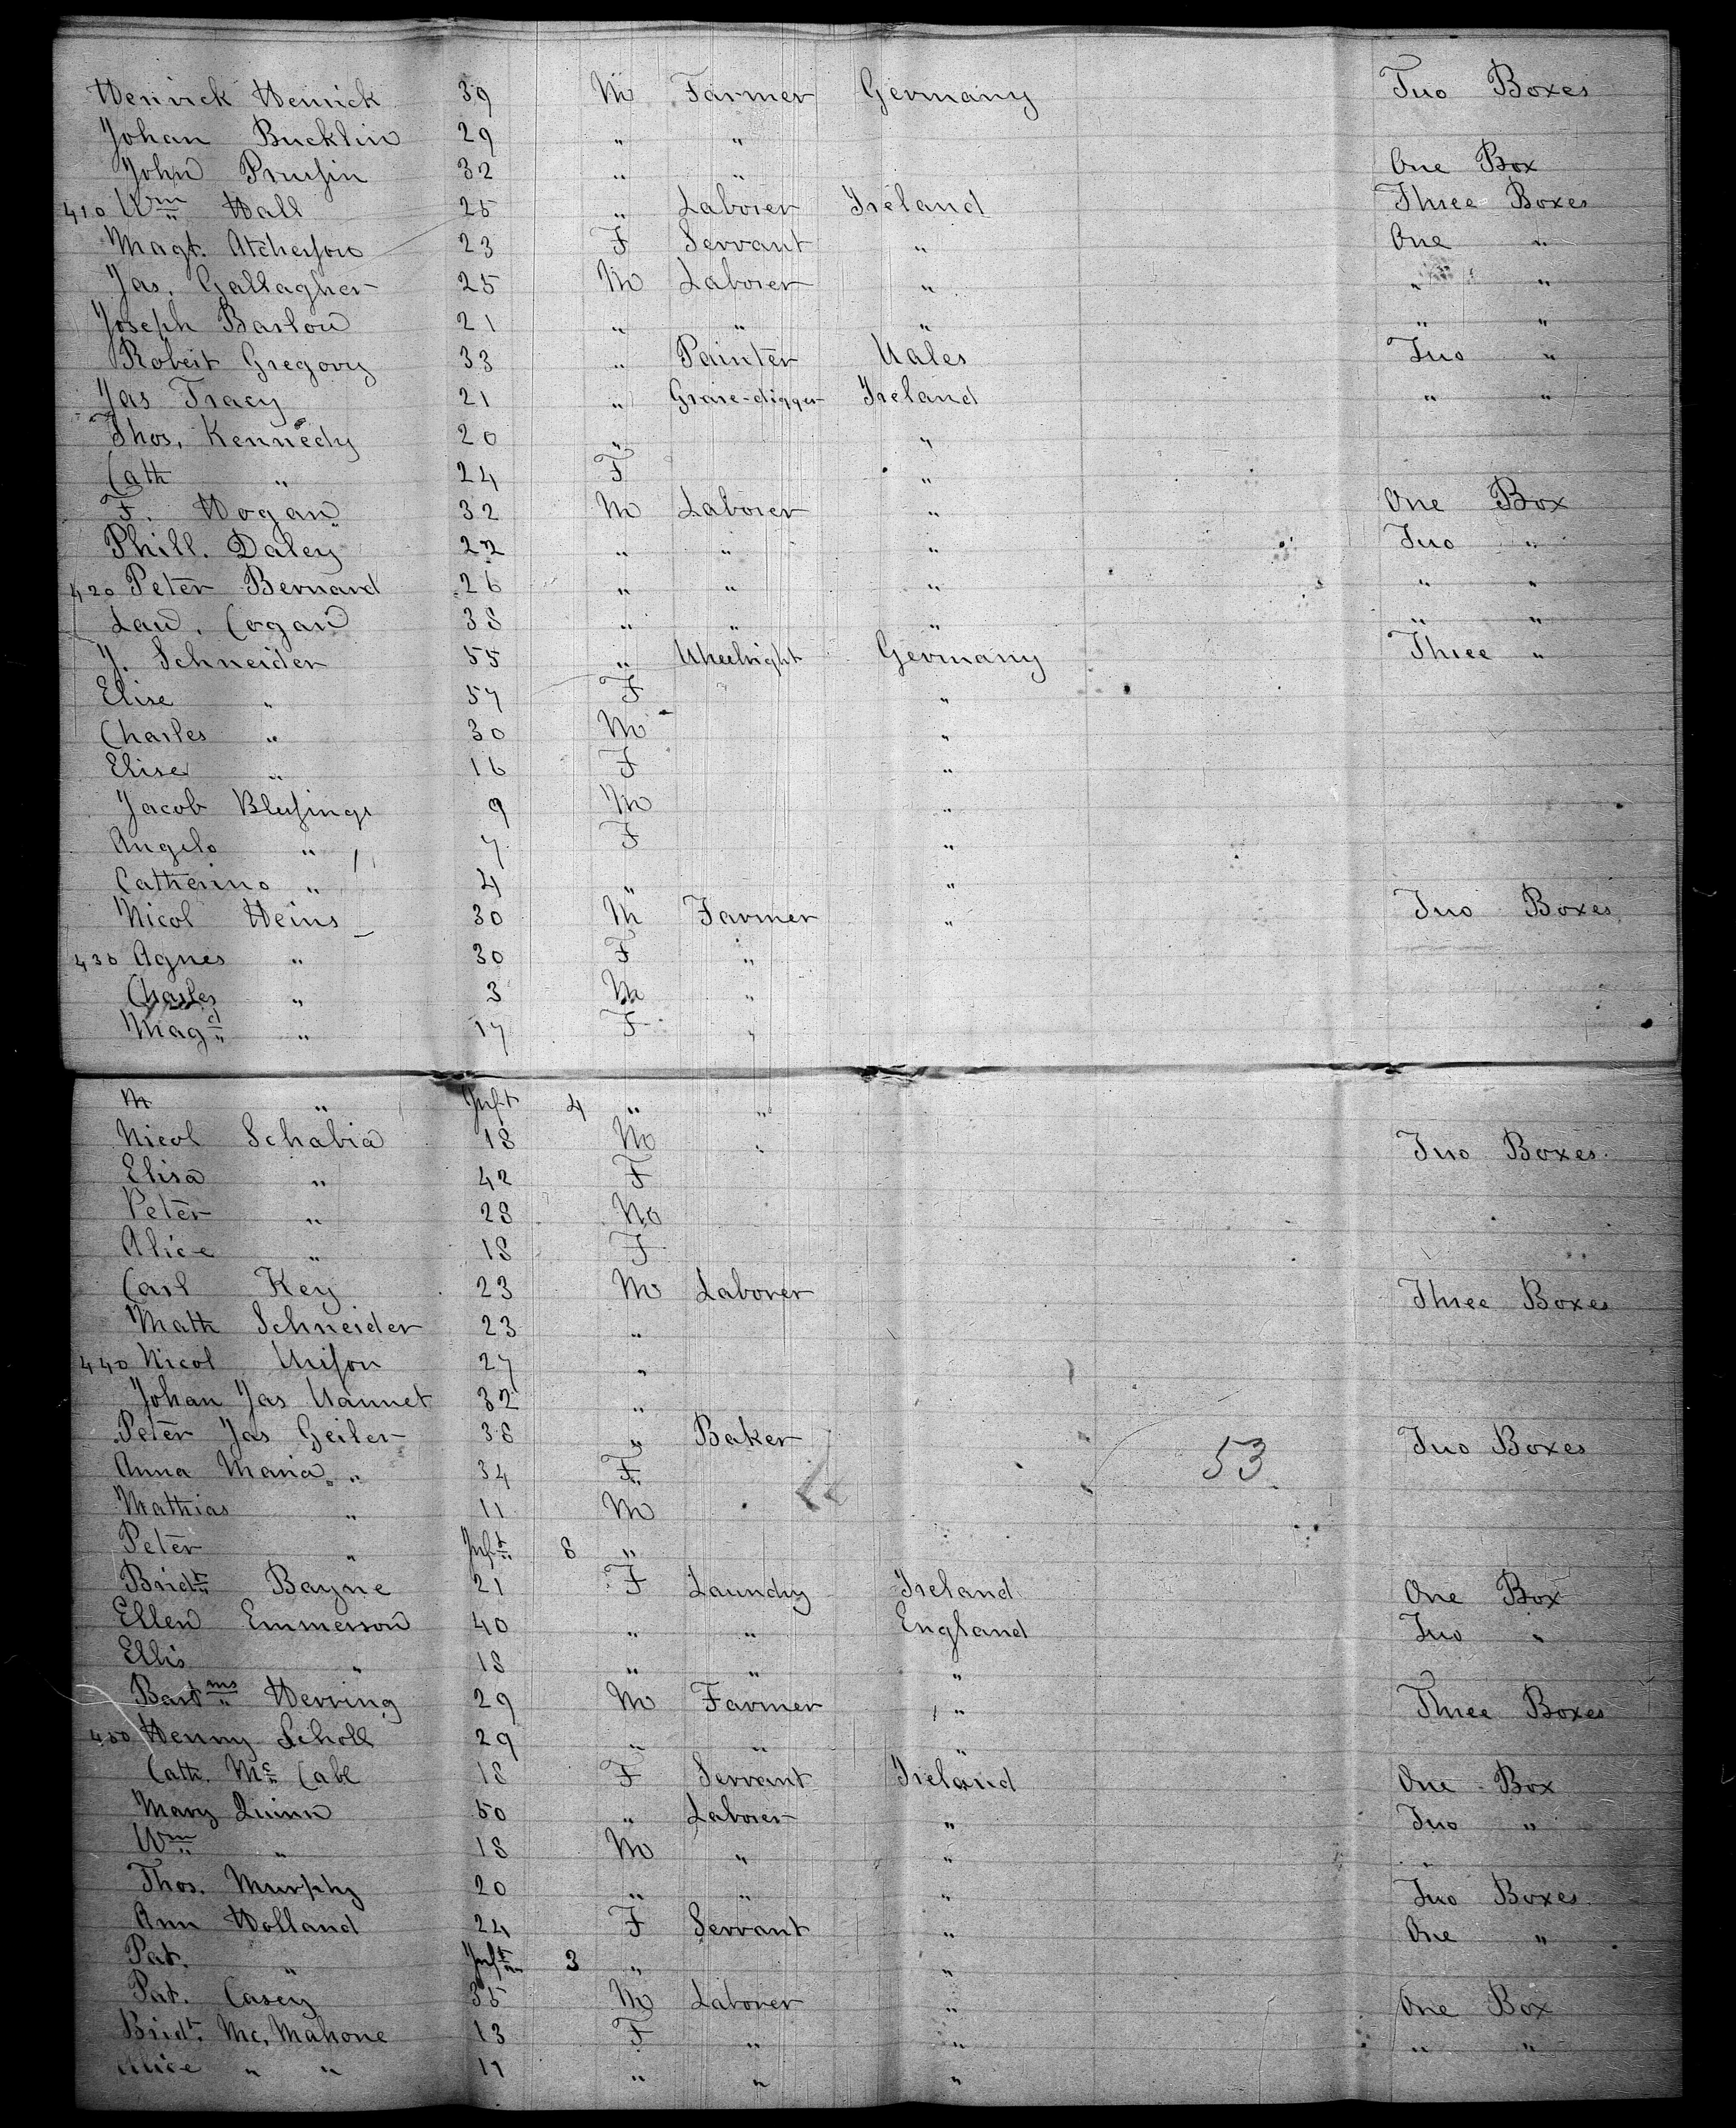 Henrick Henrick 39 M Farmer Germany Two Boxes
Johan Bucklin 29 " "
John Prussin 32 " " One Box
410 Wm Hall 25 " Laborer Ireland Three Boxes
Magt. Atcherson 23 F Servant " One "
Jas. Gallagher 25 M Laborer " " "
Joseph Barlow 21 " " " " "
Robert Gregory 33 " Painter Wales Two "
Jas Tracy 21 " Grave-digger Ireland " "
Thos. Kennedy 20 " "
Cath " 24 F "
F. Hogan 32 M Laborer " One Box
Phill. Daley 22 " " " Two "
420 Peter Bernard 26 " " " " "
Law. Cogan 38 " " " " "
J. Schneider 55 " Wheelright Germany Three "
Elise " 57 F "
Charles " 30 M "
Elise " 16 F "
Jacob Blessings 9 M "
Angelo " 7 F "
Catherine " 4 " "
Nicol Heins 30 M Farmer " Two Boxes
430 Agnes " 30 F "
Charles " 3 M "
Magt " 17 F "
M " Inft 4 " "
Nicol Schabia 18 M " Two Boxes
Elisa " 42 F
Peter " 28 M
Alice " 18 F
Carl Key 23 M Laborer Three Boxes
Math Schneider 23 "
440 Nicol 27 "
Johan Jas Wannet 32 "
Peter Jas Geiler 38 " Baker 53 Two Boxes
Anna Maria " 34 F
Mathias " 11 M
Peter " Inft 8 "
Bridt Bayne 21 F Laundry Ireland One Box
Ellen Emmerson 40 " " England Two "
Ellis " 18 " " "
Bartms Herring 29 M Farmer " Three Boxes
450 Henny Scholl 29 " " "
Cath. Mc Cabe 18 F Servant Ireland One Box
Mary Quinn 50 " Laborer " Two "
Wm " 18 M " " "
Thos. Murphy 20 " " " Two Boxes
Ann Holland 24 F Servant " One "
Pat. " Inft 3 " "
Pat. Casey 35 M Laborer " One Box
Bridt. Mc. Mahone 13 F " " " "
Alice " " 11 " " "